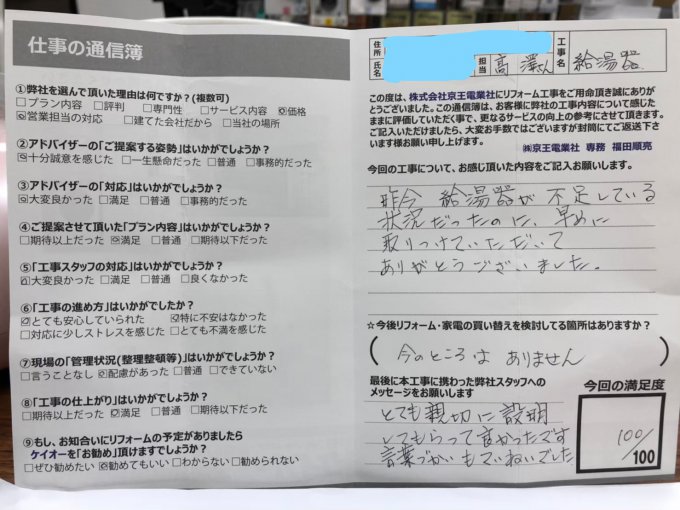 仕事の通信簿
①弊社を選んで頂いた理由は何ですか?(複数可)
□プラン内容 □評判 □専門性 □サービス内容 ☑価格
☑営業担当の対応 □建てた会社だから □当社の場所
②アドバイザーの「ご提案する姿勢」はいかがでしょうか?
☑十分誠意を感じた □一生懸命だった □普通 □事務的だった
③アドバイザーの「対応」はいかがでしょうか?
☑大変良かった □満足 □普通 □事務的だった
④ご提案させて頂いた「プラン内容」はいかがでしょうか?
□期待以上だった ☑満足 □普通 □期待以下だった
⑤「工事スタッフの対応」はいかがでしょうか?
☑大変良かった □満足 □普通 □良くなかった
⑥「工事の進め方」はいかがでしたか?
☑とても安心していられた ☑特に不安はなかった
□対応に少しストレスを感じた □とても不満を感じた
⑦現場の「管理状況(整理整頓等)」はいかがでしょうか?
□言うことなし ☑配慮があった □普通 □できていない
⑧「工事の仕上がり」はいかがでしょうか?
□期待以上だった ☑満足 □普通 □期待以下だった
⑨もし、お知合いにリフォームの予定がありましたら
ケイオーを「お勧め」頂けますでしょうか?
□ぜひ勧めたい ☑勧めてもいい □わからない □勧められない
住所
氏名
担当
高澤さん
工事名
給湯器
この度は、株式会社京王電業社にリフォーム工事をご用命頂き誠にありが
とうございました。この通信簿は、お客様に弊社の工事内容について感じた
ままに評価していただく事で、更なるサービスの向上の参考にさせて頂きます。
ご記入いただけましたら、大変お手数ではございますが封筒にてご返送下さ
います様お願い申し上げます。
㈱京王電業社 専務 福田順亮
今回の工事について、お感じ頂いた内容をご記入お願いします。
昨今 給湯器が 不足している
状況だったのに、早めに
取りつけていただいて
ありがとうございました。
☆今後リフォーム・家電の買い替えを検討してる箇所はありますか?
(今のところは ありません)
最後に本工事に携わった弊社スタッフへの
メッセージをお願いします
とても親切に説明
してもらって良かったです
言葉づかいもていねいでした
今回の満足度
100/
100